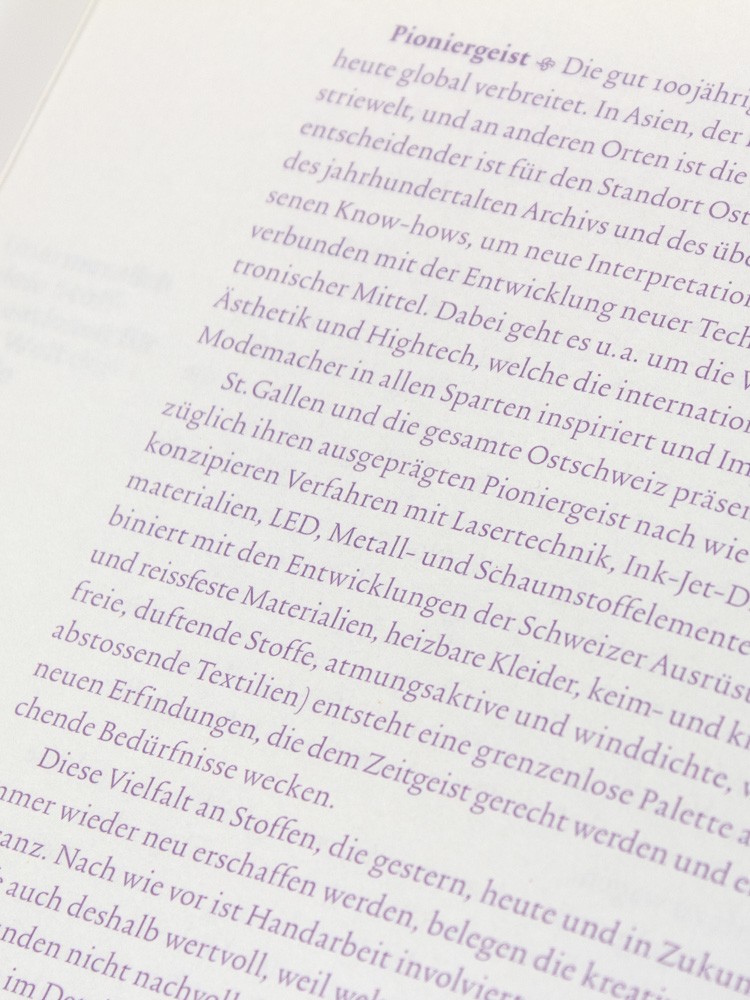 Pioniergeist Die gut 100jährig
heute global verbreitet. In Asien, der
striewelt, und an anderen Orten ist die
entscheidender ist für den Standort Ost
des jahrhundertalten Archivs und des übe
senen Know-hows, um neue Interpretation
verbunden mit der Entwicklung neuer Tech
tronischer Mittel. Dabei geht es u. a. um die V
Ästhetik und Hightech, welche die internation
Modemacher in allen Sparten inspiriert und Im
St. Gallen und die gesamte Ostschweiz präsen
züglich ihren ausgeprägten Pioniergeist nach wie
konzipieren Verfahren mit Lasertechnik, Ink-Jet-D
materialien, LED, Metall- und Schaumstoffelemente
biniert mit den Entwicklungen der Schweizer Ausrüst
und reissfeste Materialien, heizbare Kleider, keim- und k
freie, duftende Stoffe, atmungsaktive und winddichte, w
abstossende Textilien) entsteht eine grenzenlose Palette a
neuen Erfindungen, die dem Zeitgeist gerecht werden und e
chende Bedürfnisse wecken.
Diese Vielfalt an Stoffen, die gestern, heute und in Zukun
mmer wieder neu erschaffen werden, belegen die kreati
anz. Nach wie vor ist Handarbeit involviert
auch deshalb wertvoll, weil wel
nden nicht nachvoll
im De